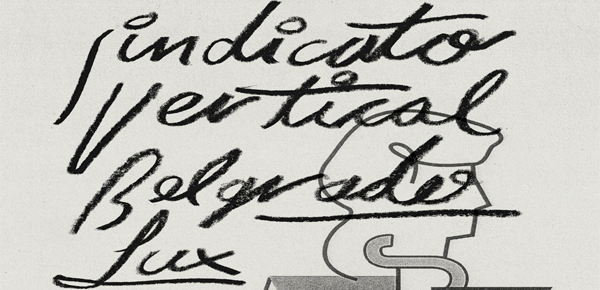 sindicato
vertical
Belgrado
Lux